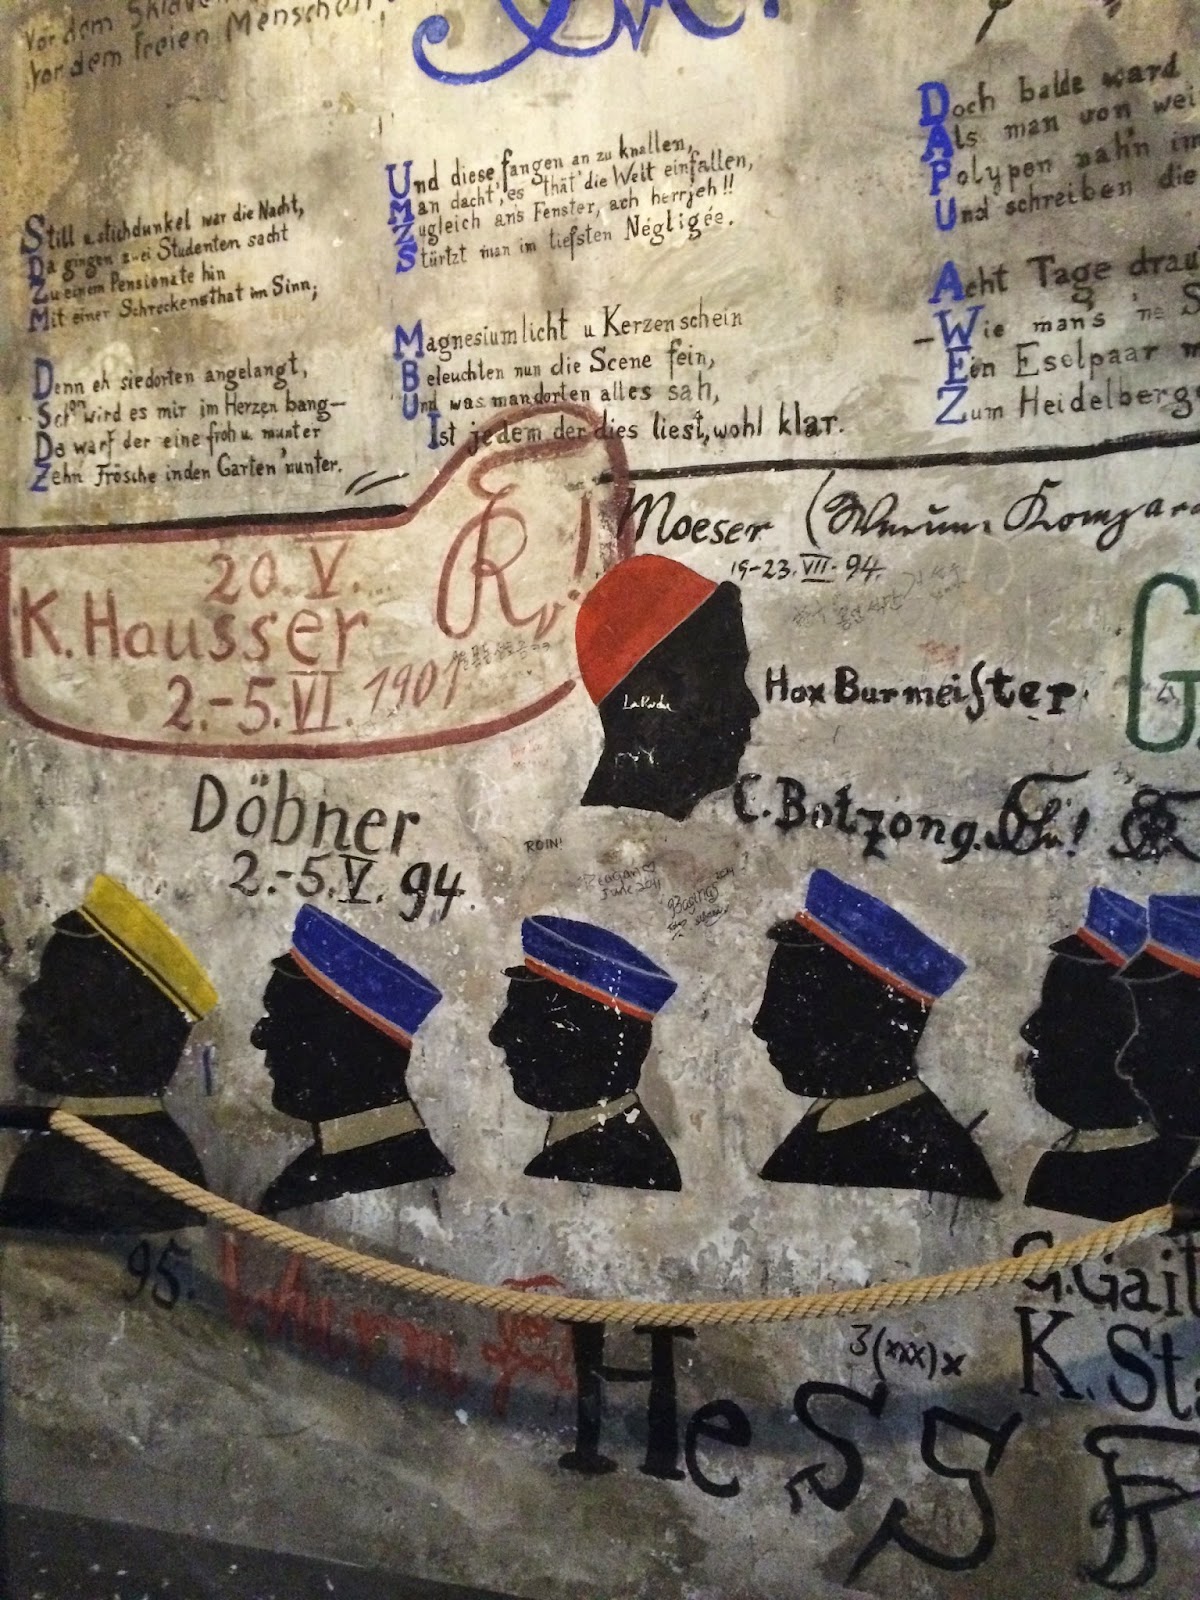 Vor dem Sklaven
Vor dem freien Menschen
Still u. stichdunkel war die Nacht,
Da gingen zwei Studenten sacht
Zu einem Pensionate hin
Mit einer Schreckensthat im Sinn;
Denn eh sie dorten angelangt,
wird es mir im Herzen bang—
Da warf der eine froh u. munter
Zehn Frösche in den Garten 'nunter.
Und diese fangen an zu knallen,
Man dacht', es thät' die Welt einfallen,
Zugleich an's Fenster, ach herrjeh!!
Stürtzt man im tiefsten Négligée.
Magnesiumlicht u Kerzenschein
Beleuchten nun die Scene fein,
Und was man dorten alles sah,
Ist jedem der dies liest, wohl klar.
Doch balde ward
Als man von wei
Polypen nah'n im
Und schreiben die
Acht Tage drau
Wie man's ne S
Ein Eselpaar m
Zum Heidelberge
20.V.
K. Hausser
2.-5.VI. 1901
Moeser
19-23.VII.94.
Hax Burmeister.
C. Botzong.
G.
Döbner
2.-5.V. 94.
ROIN!
Reagan
June 2011
2011
95.
Wurm
Hess
3(xxx)x
G. Gait
K. Sta